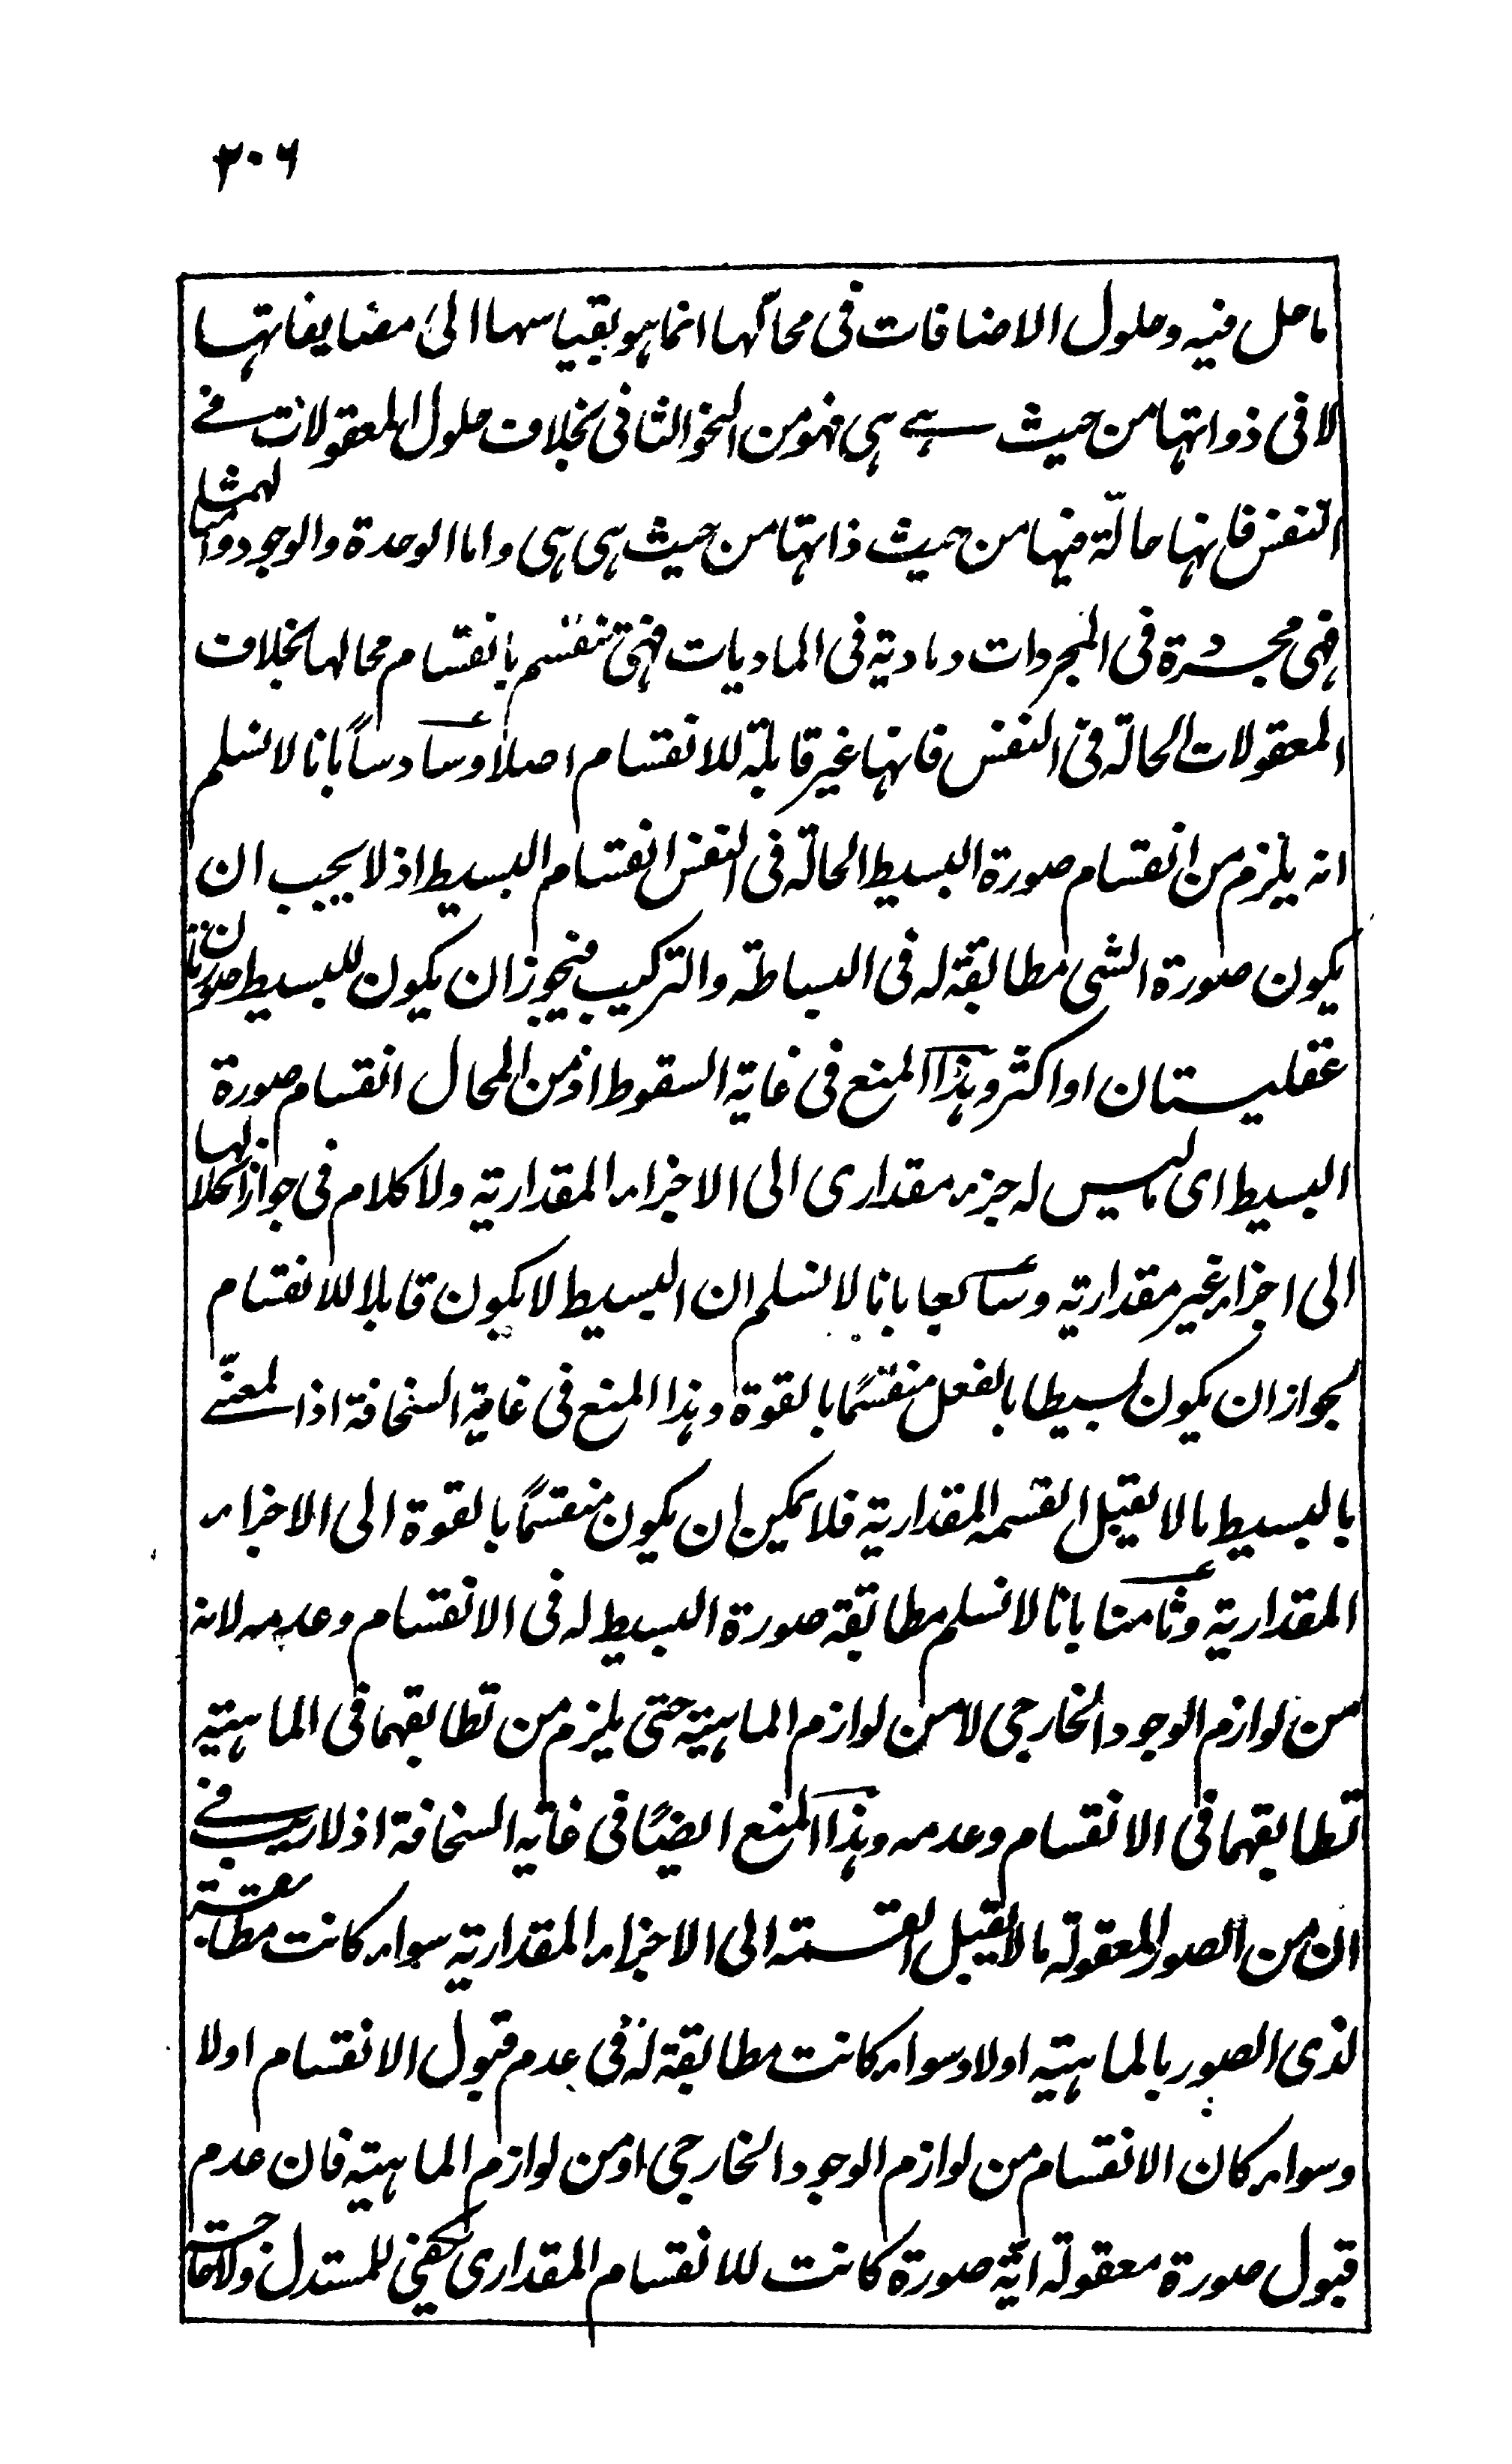 ٢٠٦
ما حل فيه وحلول الاضافات فى محالّها انما هو بقياسها الى مضايفاتها
لا فى ذواتها من حيث هى هى فهو من النحو الثانى بخلاف حلول المعقولات فى
النفس فانها حالّة فيها من حيث ذاتها من حيث هى هى واما الوحدة والوجود وامثالهما
فهى مجردة فى المجردات ومادية فى الماديات فهى تنقسم بانقسام محالها بخلاف
المعقولات الحالة فى النفس فانها غير قابلة للانقسام اصلا وسادساً بانا لا نسلم
انه يلزم من انقسام صورة البسيط الحالة فى النفس انقسام البسيط اذ لا يجب ان
يكون صورة الشى مطابقة له فى البساطة والتركيب فيجوز ان يكون للبسيط صورتان
عقليتان او اكثر وهذا المنع فى غاية السقوط اذ من المحال انقسام صورة
البسيط اى ما ليس له جزء مقدارى الى الاجزاء المقدارية ولا كلام فى جواز انحلالها
الى اجزاء غير مقدارية وسابعا بانا لا نسلم ان البسيط لا يكون قابلا للانقسام
لجواز ان يكون بسيطا بالفعل منقسمًا بالقوة وهذا المنع فى غاية السخافة اذ المعنىّ
بالبسيط ما لا يقبل القسمة المقدارية فلا يمكن ان يكون منقسمًا بالقوة الى الاجزاء
المقدارية وثامنا بانا لا نسلم مطابقة صورة البسيط له فى الانقسام وعدمه لانه
من لوازم الوجود الخارجى لا من لوازم الماهية حتى يلزم من تطابقهما فى الماهية
تطابقهما فى الانقسام وعدمه وهذا المنع ايضًا فى غاية السخافة اذ لا ريب فى
ان من الصور المعقولة ما لا يقبل القسمة الى الاجزاء المقدارية سواء كانت مطابقة
لذى الصور بالماهية او لا وسواء كانت مطابقة له فى عدم قبول الانقسام او لا
وسواء كان الانقسام من لوازم الوجود الخارجى او من لوازم الماهية فان عدم
قبول صورة معقولة ايّة صورة كانت للانقسام المقدارى يكفى للمستدل ولا حاجة